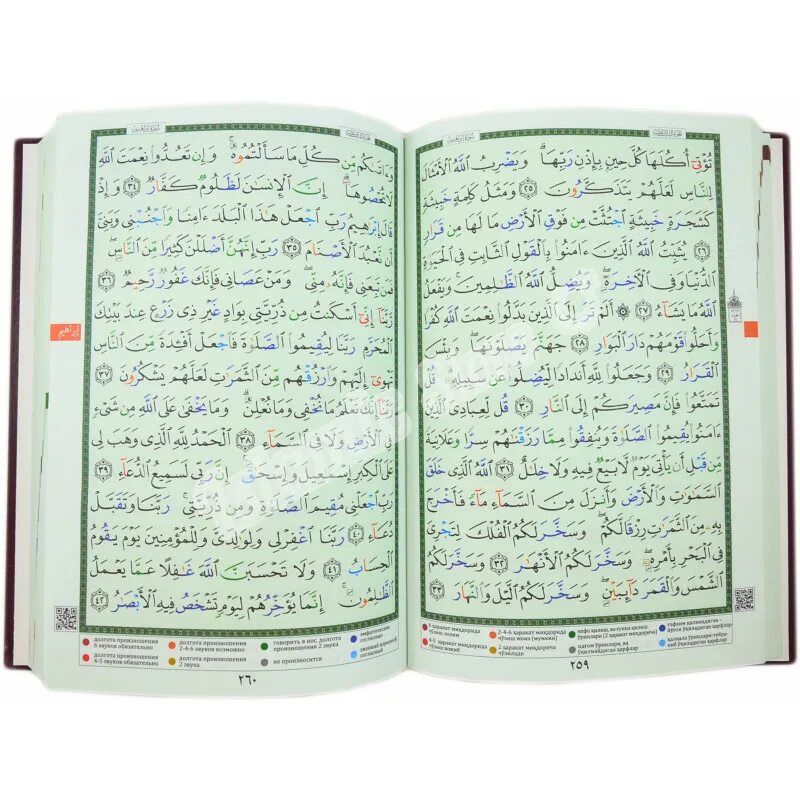 تُؤْتِىٓ أُكُلَهَا كُلَّ حِينٍۭ بِإِذْنِ رَبِّهَا ۗ وَيَضْرِبُ ٱللَّهُ ٱلْأَمْثَالَ
لِلنَّاسِ لَعَلَّهُمْ يَتَذَكَّرُونَ ٢٥ وَمَثَلُ كَلِمَةٍ خَبِيثَةٍ
كَشَجَرَةٍ خَبِيثَةٍ ٱجْتُثَّتْ مِن فَوْقِ ٱلْأَرْضِ مَا لَهَا مِن قَرَارٍ
٢٦ يُثَبِّتُ ٱللَّهُ ٱلَّذِينَ ءَامَنُوا۟ بِٱلْقَوْلِ ٱلثَّابِتِ فِى ٱلْحَيَوٰةِ
ٱلدُّنْيَا وَفِى ٱلْءَاخِرَةِ ۖ وَيُضِلُّ ٱللَّهُ ٱلظَّٰلِمِينَ ۚ وَيَفْعَلُ
ٱللَّهُ مَا يَشَآءُ ٢٧ ۞ أَلَمْ تَرَ إِلَى ٱلَّذِينَ بَدَّلُوا۟ نِعْمَتَ ٱللَّهِ كُفْرًا
وَأَحَلُّوا۟ قَوْمَهُمْ دَارَ ٱلْبَوَارِ ٢٨ جَهَنَّمَ يَصْلَوْنَهَا ۖ وَبِئْسَ
ٱلْقَرَارُ ٢٩ وَجَعَلُوا۟ لِلَّهِ أَندَادًا لِّيُضِلُّوا۟ عَن سَبِيلِهِۦ ۗ قُلْ
تَمَتَّعُوا۟ فَإِنَّ مَصِيرَكُمْ إِلَى ٱلنَّارِ ٣٠ قُل لِّعِبَادِىَ ٱلَّذِينَ
ءَامَنُوا۟ يُقِيمُوا۟ ٱلصَّلَوٰةَ وَيُنفِقُوا۟ مِمَّا رَزَقْنَٰهُمْ سِرًّا وَعَلَانِيَةً
مِّن قَبْلِ أَن يَأْتِىَ يَوْمٌ لَّا بَيْعٌ فِيهِ وَلَا خِلَٰلٌ ٣١ ٱللَّهُ ٱلَّذِى خَلَقَ
ٱلسَّمَٰوَٰتِ وَٱلْأَرْضَ وَأَنزَلَ مِنَ ٱلسَّمَآءِ مَآءً فَأَخْرَجَ
بِهِۦ مِنَ ٱلثَّمَرَٰتِ رِزْقًا لَّكُمْ ۖ وَسَخَّرَ لَكُمُ ٱلْفُلْكَ لِتَجْرِىَ
فِى ٱلْبَحْرِ بِأَمْرِهِۦ ۖ وَسَخَّرَ لَكُمُ ٱلْأَنْهَٰرَ ٣٢ وَسَخَّرَ لَكُمُ
ٱلشَّمْسَ وَٱلْقَمَرَ دَآئِبَيْنِ ۖ وَسَخَّرَ لَكُمُ ٱلَّيْلَ وَٱلنَّهَارَ ٣٣
٢٥٩
وَءَاتَىٰكُم مِّن كُلِّ مَا سَأَلْتُمُوهُ ۚ وَإِن تَعُدُّوا۟ نِعْمَتَ ٱللَّهِ
لَا تُحْصُوهَآ ۗ إِنَّ ٱلْإِنسَٰنَ لَظَلُومٌ كَفَّارٌ ٣٤ وَإِذْ
قَالَ إِبْرَٰهِيمُ رَبِّ ٱجْعَلْ هَٰذَا ٱلْبَلَدَ ءَامِنًا وَٱجْنُبْنِى وَبَنِىَّ
أَن نَّعْبُدَ ٱلْأَصْنَامَ ٣٥ رَبِّ إِنَّهُنَّ أَضْلَلْنَ كَثِيرًا مِّنَ ٱلنَّاسِ ۖ
فَمَن تَبِعَنِى فَإِنَّهُۥ مِنِّى ۖ وَمَنْ عَصَانِى فَإِنَّكَ غَفُورٌ رَّحِيمٌ ٣٦
رَّبَّنَآ إِنِّىٓ أَسْكَنتُ مِن ذُرِّيَّتِى بِوَادٍ غَيْرِ ذِى زَرْعٍ عِندَ بَيْتِكَ
ٱلْمُحَرَّمِ رَبَّنَا لِيُقِيمُوا۟ ٱلصَّلَوٰةَ فَٱجْعَلْ أَفْـِٔدَةً مِّنَ ٱلنَّاسِ
تَهْوِىٓ إِلَيْهِمْ وَٱرْزُقْهُم مِّنَ ٱلثَّمَرَٰتِ لَعَلَّهُمْ يَشْكُرُونَ ٣٧
رَبَّنَآ إِنَّكَ تَعْلَمُ مَا نُخْفِى وَمَا نُعْلِنُ ۗ وَمَا يَخْفَىٰ عَلَى ٱللَّهِ مِن شَىْءٍ
فِى ٱلْأَرْضِ وَلَا فِى ٱلسَّمَآءِ ٣٨ ٱلْحَمْدُ لِلَّهِ ٱلَّذِى وَهَبَ لِى
عَلَى ٱلْكِبَرِ إِسْمَٰعِيلَ وَإِسْحَٰقَ ۚ إِنَّ رَبِّى لَسَمِيعُ ٱلدُّعَآءِ ٣٩
رَبِّ ٱجْعَلْنِى مُقِيمَ ٱلصَّلَوٰةِ وَمِن ذُرِّيَّتِى ۚ رَبَّنَا وَتَقَبَّلْ
دُعَآءِ ٤٠ رَبَّنَا ٱغْفِرْ لِى وَلِوَٰلِدَىَّ وَلِلْمُؤْمِنِينَ يَوْمَ يَقُومُ
ٱلْحِسَابُ ٤١ وَلَا تَحْسَبَنَّ ٱللَّهَ غَٰفِلًا عَمَّا يَعْمَلُ
ٱلظَّٰلِمُونَ ۚ إِنَّمَا يُؤَخِّرُهُمْ لِيَوْمٍ تَشْخَصُ فِيهِ ٱلْأَبْصَٰرُ ٤٢
إبراهيم
долгота произношения
6 звуков обязательно
долгота произношения
2-4-6 звуков возможно
говорить в нос, долгота
произношения 2 звука
эмфатические
долгота произношения
4-5 звуков обязательно
долгота произношения
2 звука
не произносится
согласный
٢٦٠